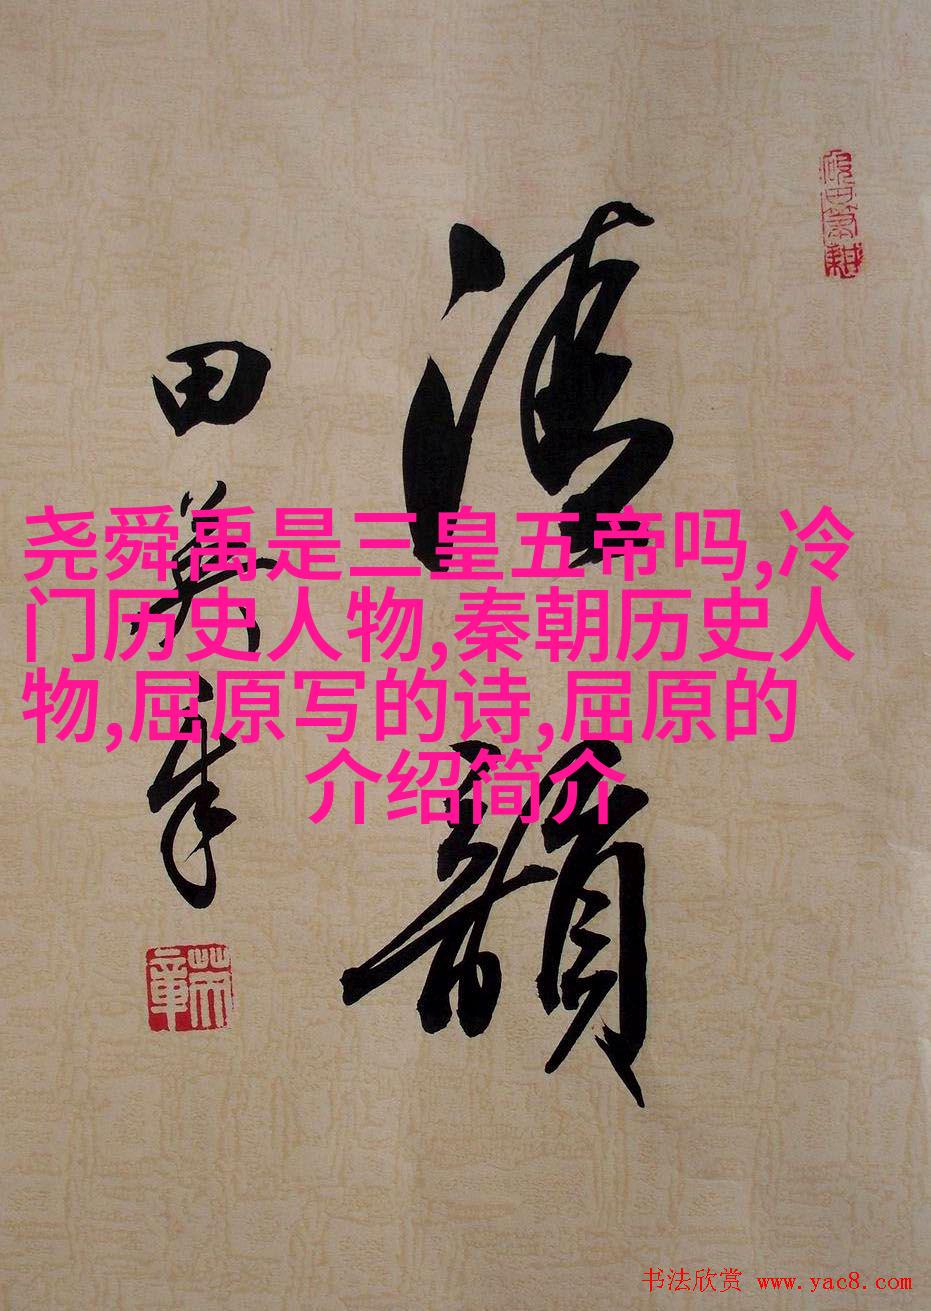 清
韻
田英章
尧舜禹是三皇五帝吗,冷
门历史人物,秦朝历史人
物,屈原写的诗,屈原的
介绍简介
书法欣赏 www.yac8.com